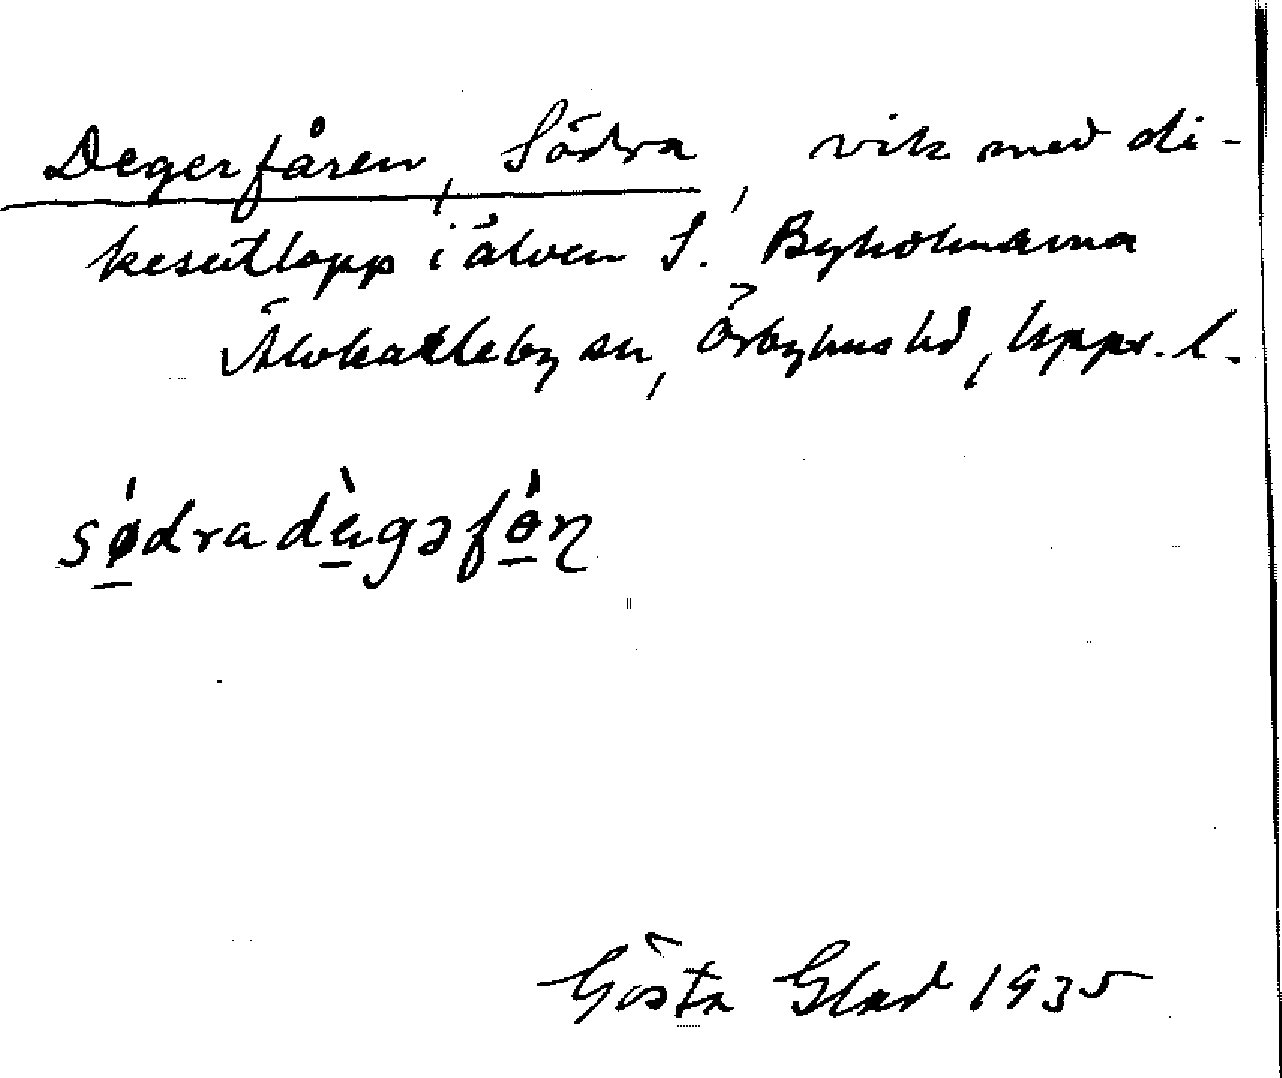 Degerfåren, Södra, vik med di-
kesutlopp i älven S. Byholmarna
Älvkarleby sn, Örbyhus hd, Upps. l.
sødradègəfón
Gösta Glad 1935